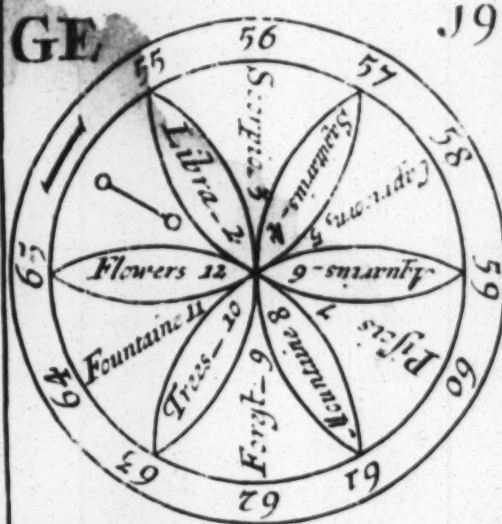 GE
J9
55
56
57
58
59
60
61
62
63
64
65
Libra - 2
Scorpio 3
Sagitarius - 4
Capricorns 5
Aquarius - 6
Piſcis 7
Mountaine 8
Foryſt - 9
Trees - 10
Fountaine 11
Flowers 12